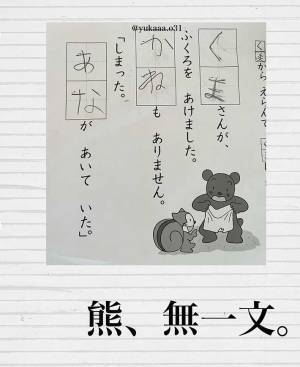 @yukaaa.o31
からえらんで
くまさんが、
ふくろを あけました。
かねも ありません。
「しまった。
あなが あいて いた。」
熊、無一文。